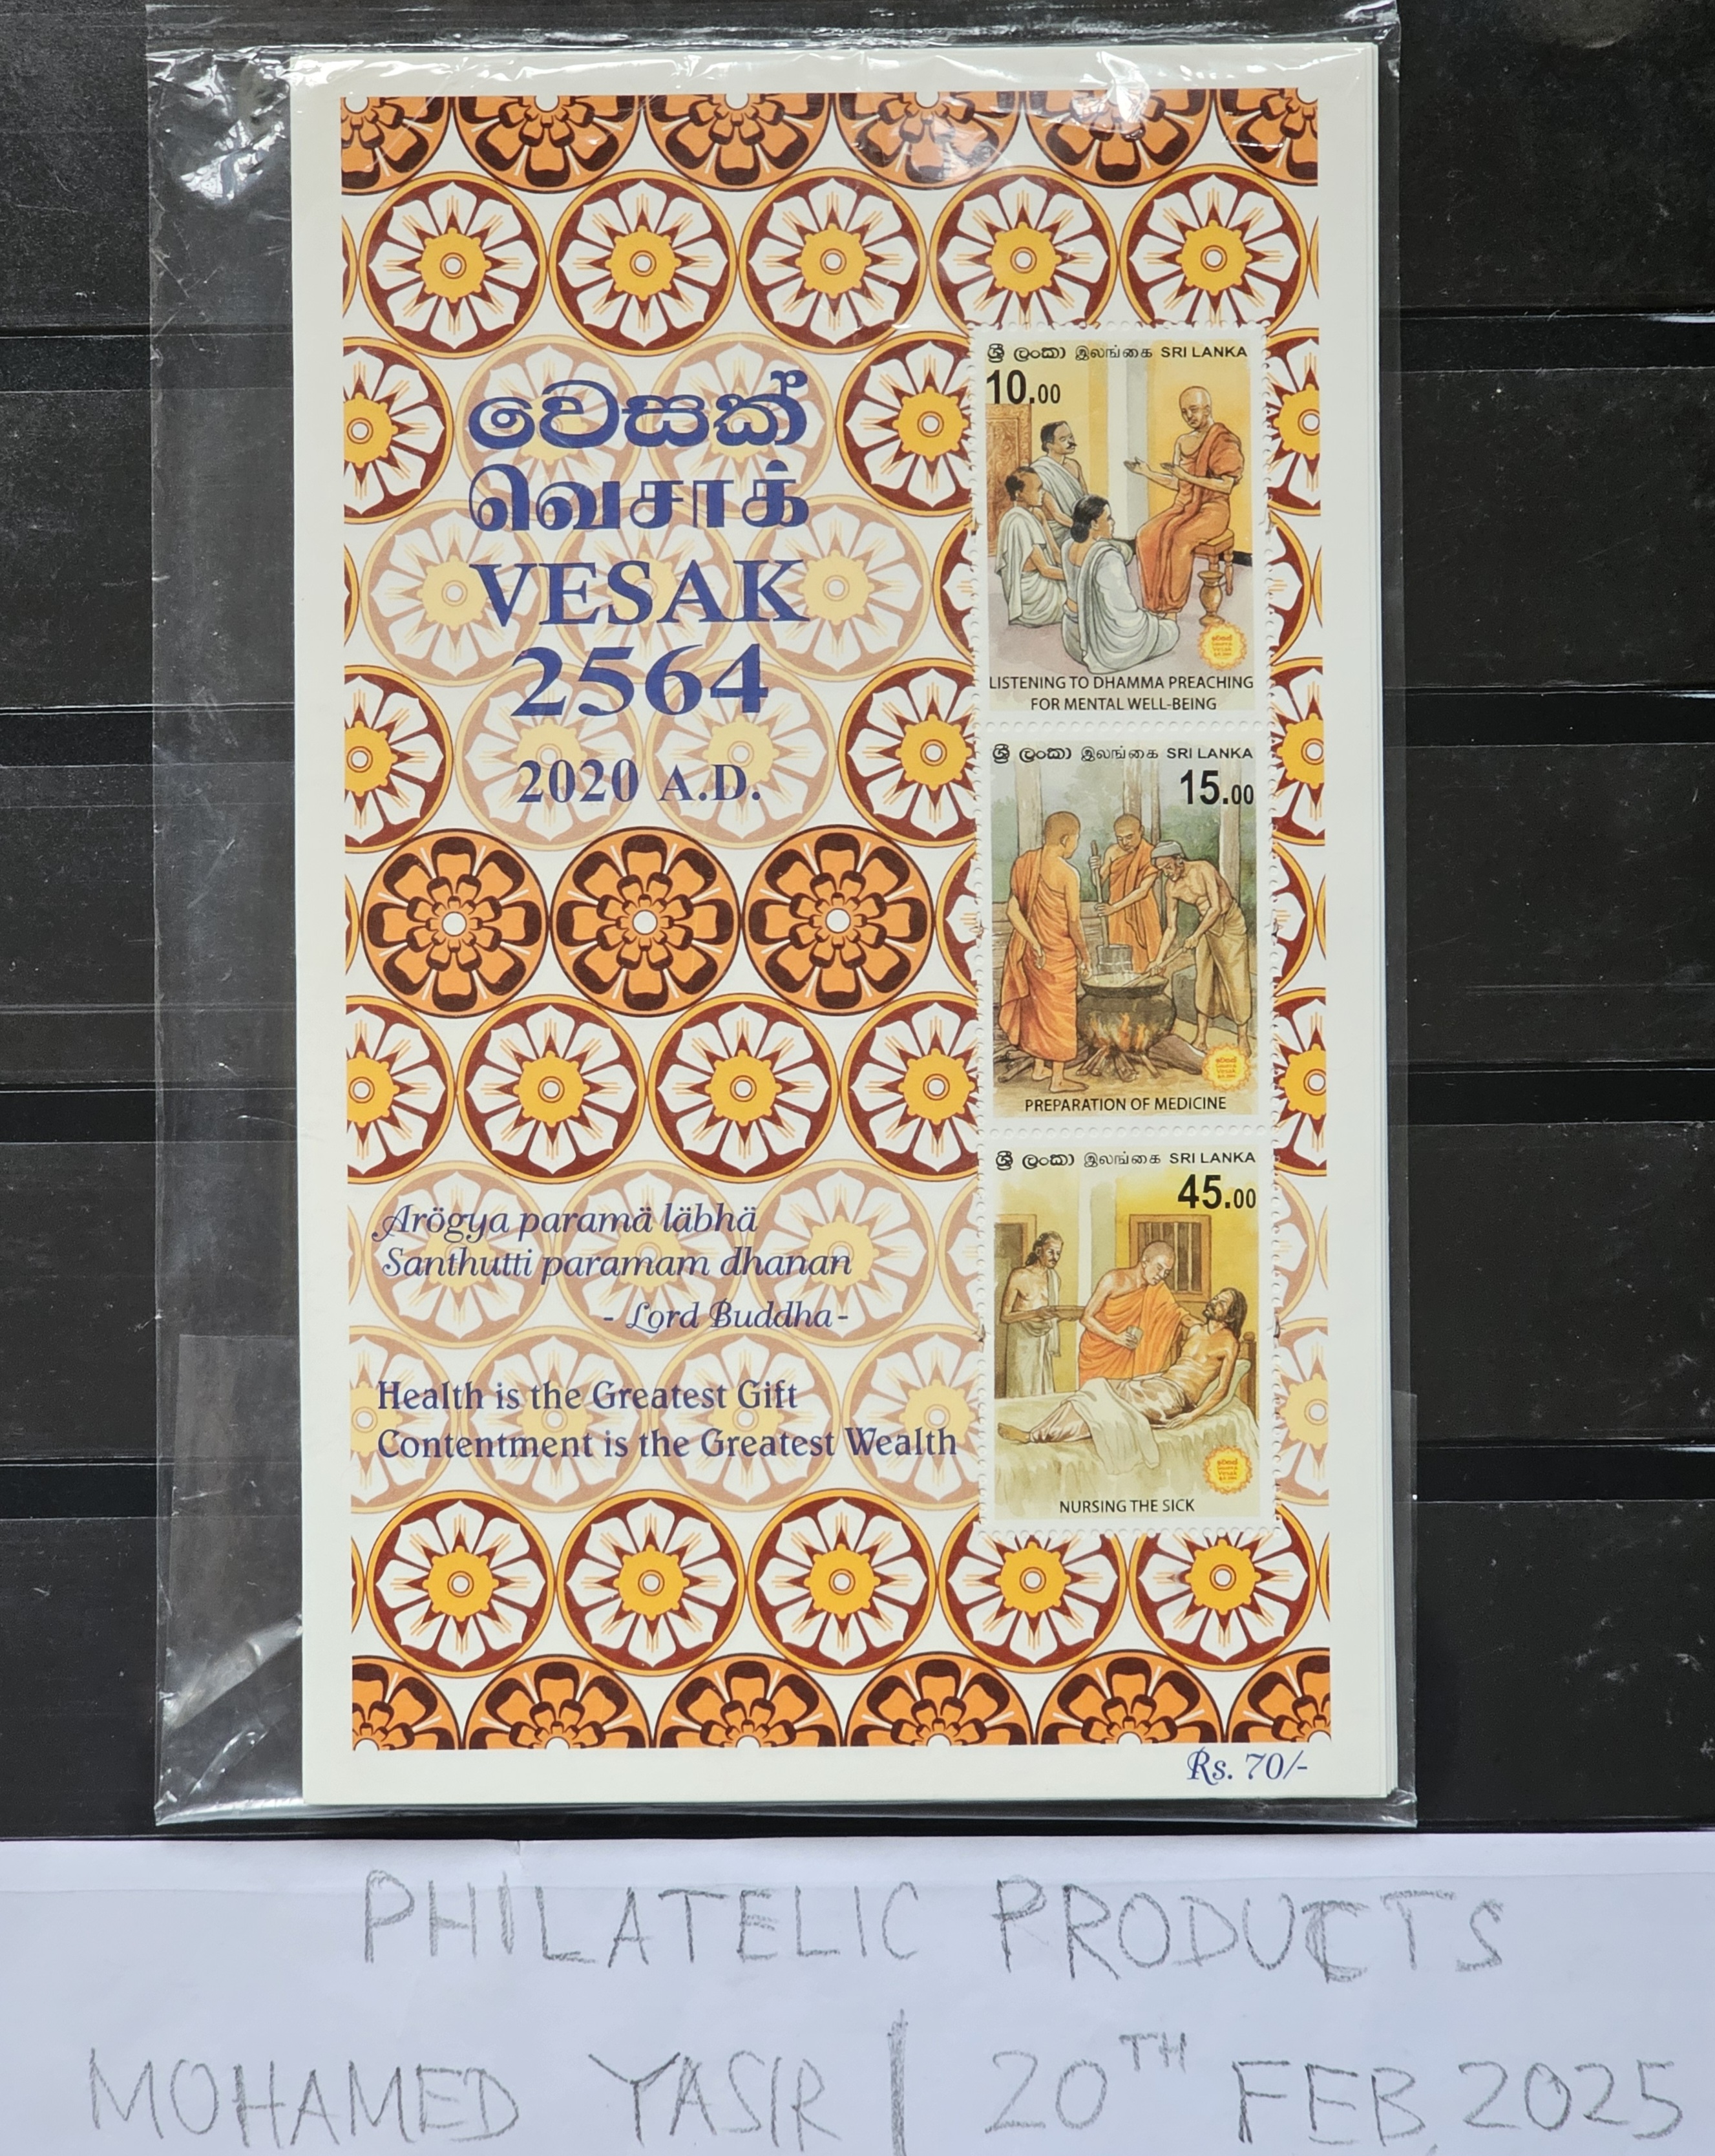 වෙසක්
வெசாக்
VESAK
2564
2020 A.D.
Arögya paramä läbhä
Santhutti paramam dhanan
- Lord Buddha -
Health is the Greatest Gift
Contentment is the Greatest Wealth
ශ්‍රී ලංකා இலங்கை SRI LANKA
10.00
LISTENING TO DHAMMA PREACHING
FOR MENTAL WELL-BEING
ශ්‍රී ලංකා இலங்கை SRI LANKA
15.00
PREPARATION OF MEDICINE
ශ්‍රී ලංකා இலங்கை SRI LANKA
45.00
NURSING THE SICK
Rs. 70/-
PHILATELIC PRODUCTS
MOHAMED YASIR | 20TH FEB, 2025